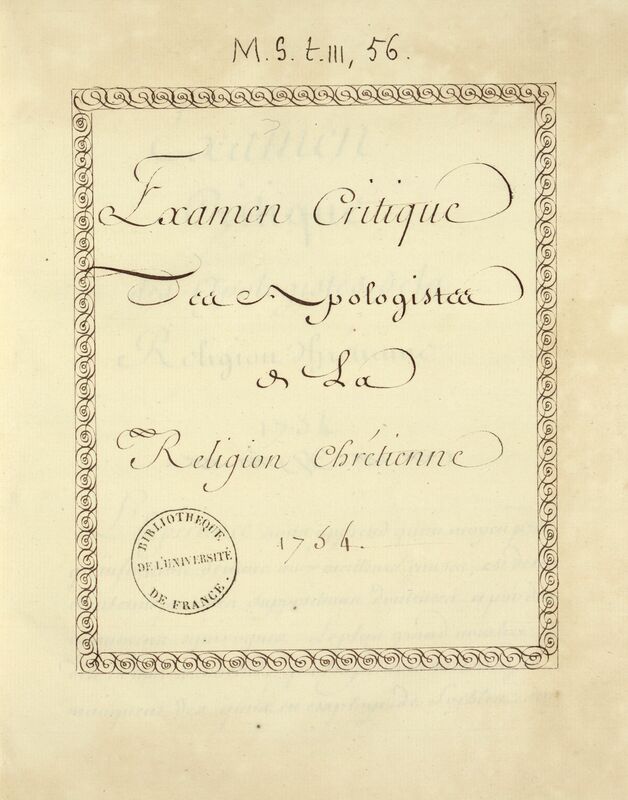 M. S. t. III, 56.
Examen Critique
Des Apologistes
de La
Religion chrétienne
1754.
BIBLIOTHEQUE
DE L'UNIVERSITÉ
DE FRANCE.